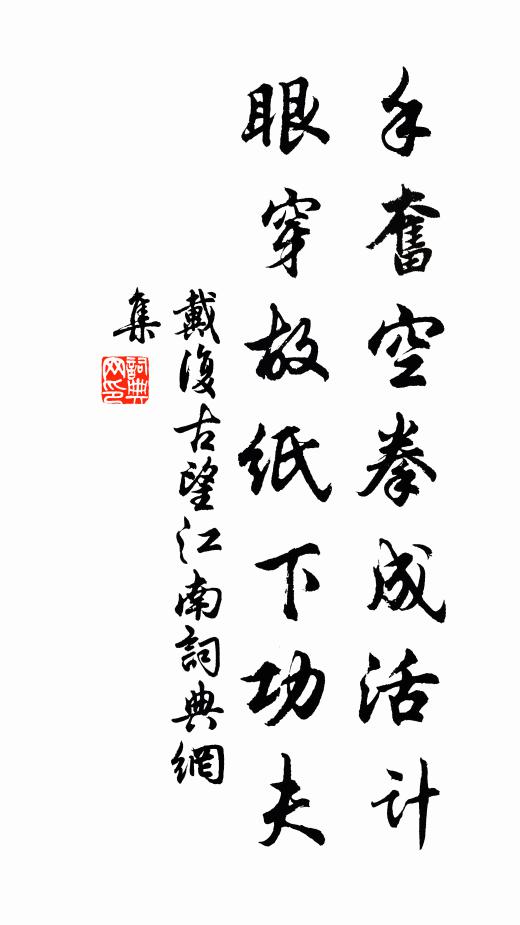 手奮空拳成活計
眼穿故紙下功夫
戴復古望江南詞典網
集
詞典網印